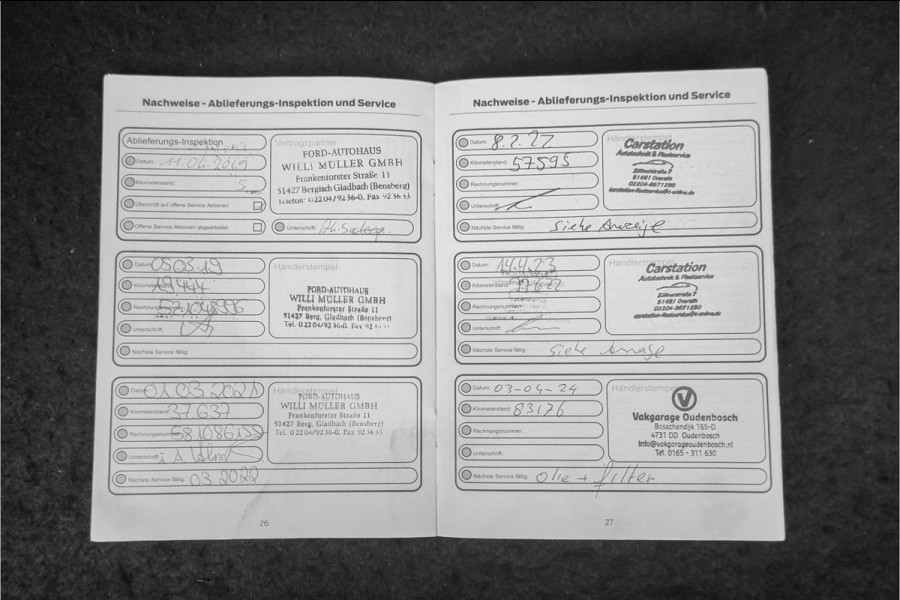 Nachweise - Ablieferungs-Inspektion und Service
Ablieferungs-Inspektion
Datum:
Kilometerstand: 5
Überprüft auf offene Service Aktionen
Offene Service Aktionen abgearbeitet
Vertragspartner
FORD-AUTOHAUS
WILLI MÜLLER GMBH
Frankenforster Straße 11
51427 Bergisch Gladbach (Bensberg)
Telefon: 02204/9236-0, Fax 923633
Unterschrift:
Datum: 05 03 19
Kilometerstand: 19.444
Rechnungsnummer:
Unterschrift:
Händlerstempel
FORD-AUTOHAUS
WILLI MÜLLER GMBH
Frankenforster Straße 11
51427 Berg. Gladbach (Bensberg)
Tel. 02204/9236-0, Fax
Nächste Service fällig:
Datum: 01 03 2021
Kilometerstand: 37 637
Rechnungsnummer:
Unterschrift:
Händlerstempel
FORD-AUTOHAUS
WILLI MÜLLER GMBH
Frankenforster Straße 11
51427 Berg. Gladbach (Bensberg)
Tel. 02204/9236-0, Fax 923633
Nächste Service fällig: 03 2022
26
Nachweise - Ablieferungs-Inspektion und Service
Datum: 8.2.22
Kilometerstand: 57595
Rechnungsnummer:
Unterschrift:
Händlerstempel
Carstation
Autotechnik & Fleetservice
51491 Overath
02204-9671290
Nächste Service fällig: siehe Anzeige
Datum: 14.4.23
Kilometerstand:
Rechnungsnummer:
Unterschrift:
Händlerstempel
Carstation
Autotechnik & Fleetservice
51491 Overath
02204-9671290
Nächste Service fällig: siehe
Datum: 03-04-24
Kilometerstand: 83176
Rechnungsnummer:
Unterschrift:
Händlerstempel
V
Vakgarage Oudenbosch
Bosschendijk 165-D
4731 DD Oudenbosch
info@vakgarageoudenbosch.nl
Tel. 0165 - 311 630
Nächste Service fällig: Olie + filter
27